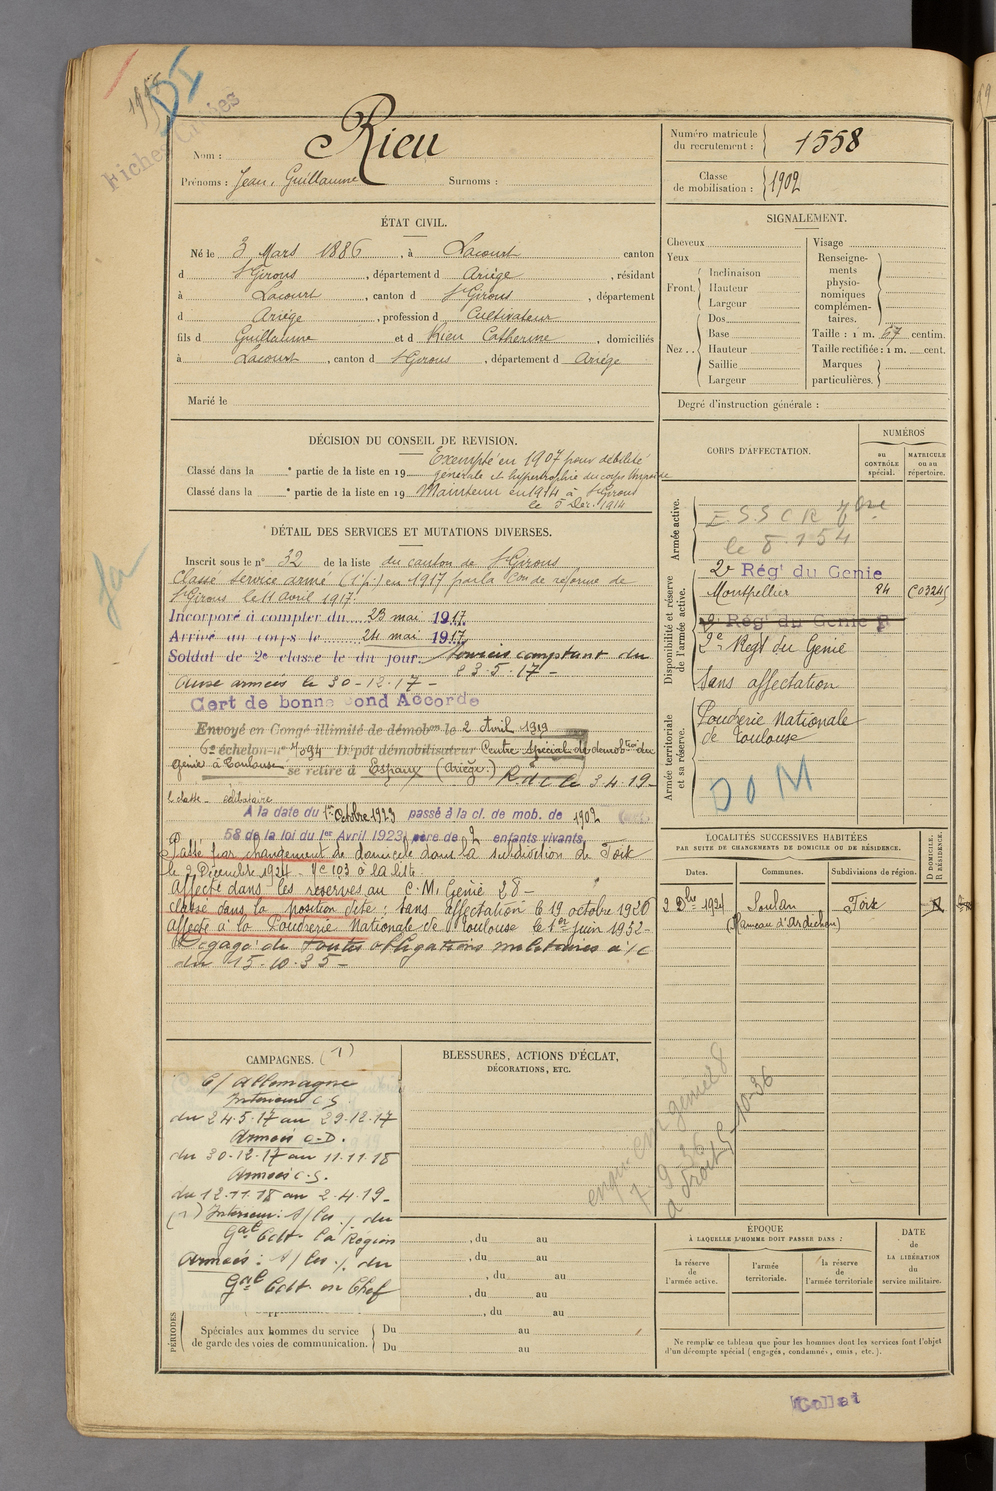 1906
DI
Fiches Créées
Nom : Rieu
Prénoms : Jean, Guillaume Surnoms :
Numéro matricule
du recrutement : 1558
Classe
de mobilisation : 1902
ÉTAT CIVIL.
Né le 3 Mars 1886, à Lacourt canton
d St Girons, département d Ariège, résidant
à Lacourt, canton d St Girons, département
d Ariège, profession d Cultivateur
fils d Guillaume et d Rieu Catherine, domiciliés
à Lacourt, canton d St Girons, département d Ariège
Marié le
SIGNALEMENT.
Cheveux
Yeux
Front. Inclinaison
Hauteur
Largeur
Nez .. Dos
Base
Hauteur
Saillie
Largeur
Visage
Renseigne-
ments
physio-
nomiques
complémen-
taires.
Taille : 1 m. 67 centim.
Taille rectifiée : 1 m. cent.
Marques
particulières.
Degré d'instruction générale :
DÉCISION DU CONSEIL DE REVISION.
Exempté en 1907 pour débilité
Classé dans la e partie de la liste en 19 générale et hypertrophie du corps thyroïde
Classé dans la e partie de la liste en 19 Maintenu en 1914 à St Girons
le 5 Déc. 1914
DÉTAIL DES SERVICES ET MUTATIONS DIVERSES.
Inscrit sous le n° 32 de la liste du canton de St Girons
Classé service armé (1 p.) en 1917 par la Con de réforme de
St Girons le 11 avril 1917.
Incorporé à compter du 23 mai 1917.
Arrivé au corps le 24 mai 1917.
Soldat de 2e classe le du jour. Services comptant du
23-5-17 -
Aux armées le 30-12-17 -
Cert de bonne cond Accordé
Envoyé en Congé illimité de démobon le 2 Avril 1919
6e échelon n° 7094 Dépôt démobilisateur Centre Spécial de démobtion du
génie à Toulouse se retire à Espaux (Ariège.) R.d.c le 3-4-19-
célibataire
A la date du 1er Octobre 1923 passé à la cl. de mob. de 1902
58 de la loi du 1er Avril 1923 père de 2 enfants vivants
Passé par changement de domicile dans la subdivision de Foix
le 2 Décembre 1924. N° 103 à la liste
Affecté dans les réserves au C.M. Génie 28 -
Classé dans la position dite : Sans affectation le 19 octobre 1926
Affecté à la Poudrerie Nationale de Toulouse le 1er juin 1932-
Dégagé de toutes obligations militaires à/c
du 15-10-35 -
CORPS D'AFFECTATION.
NUMÉROS
au
CONTRÔLE
spécial.
MATRICULE
ou au
répertoire.
Armée active.
E.S.S C R
le 8.1 54
Disponibilité et réserve
de l'armée active.
2e Rég' du Génie
Montpellier 24 C03245
2e Rég' du Genie R
2e Regt du Génie
Sans affectation
Armée territoriale
et sa réserve.
Poudrerie Nationale
de Toulouse
DOM
LOCALITÉS SUCCESSIVES HABITÉES
PAR SUITE DE CHANGEMENTS DE DOMICILE OU DE RÉSIDENCE.
Dates. Communes. Subdivisions de région. D DOMICILE. R RÉSIDENCE.
2 Dbre 1924 Soulan Foix
(Hameau d'Ardichen)
CAMPAGNES. (1)
C/ Allemagne
Intérieur C.S.
du 24-5-17 au 29-12-17
Armées C.D.
du 30-12-17 au 11-11-18
Armées C.S.
du 12-11-18 au 2-4-19-
(1) Intérieur : S/ Ces . /. du
Gal Cdt la Région
Armées : S/ Ces . /. du
Gal Cdt en Chef
BLESSURES, ACTIONS D'ÉCLAT,
DÉCORATIONS, ETC.
, du au
, du au
, du au
, du au
, du au
PÉRIODES
Spéciales aux hommes du service
de garde des voies de communication.
Du au
Du au
7 9 36
à Droit 5-10-36
ÉPOQUE
À LAQUELLE L'HOMME DOIT PASSER DANS :
la réserve
de
l'armée active.
l'armée
territoriale.
la réserve
de
l'armée territoriale
DATE
de
LA LIBÉRATION
du
service militaire.
Ne remplir ce tableau que pour les hommes dont les services font l'objet
d'un décompte spécial (engagés, condamnés, omis, etc.).
Collat